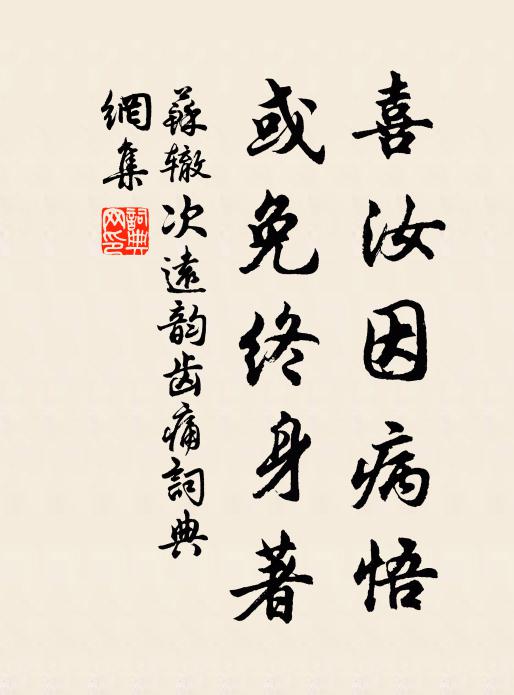 喜汝因病悟
或免终身著
蘇辙次遠韵齿痛詞典
網集
詞典网印